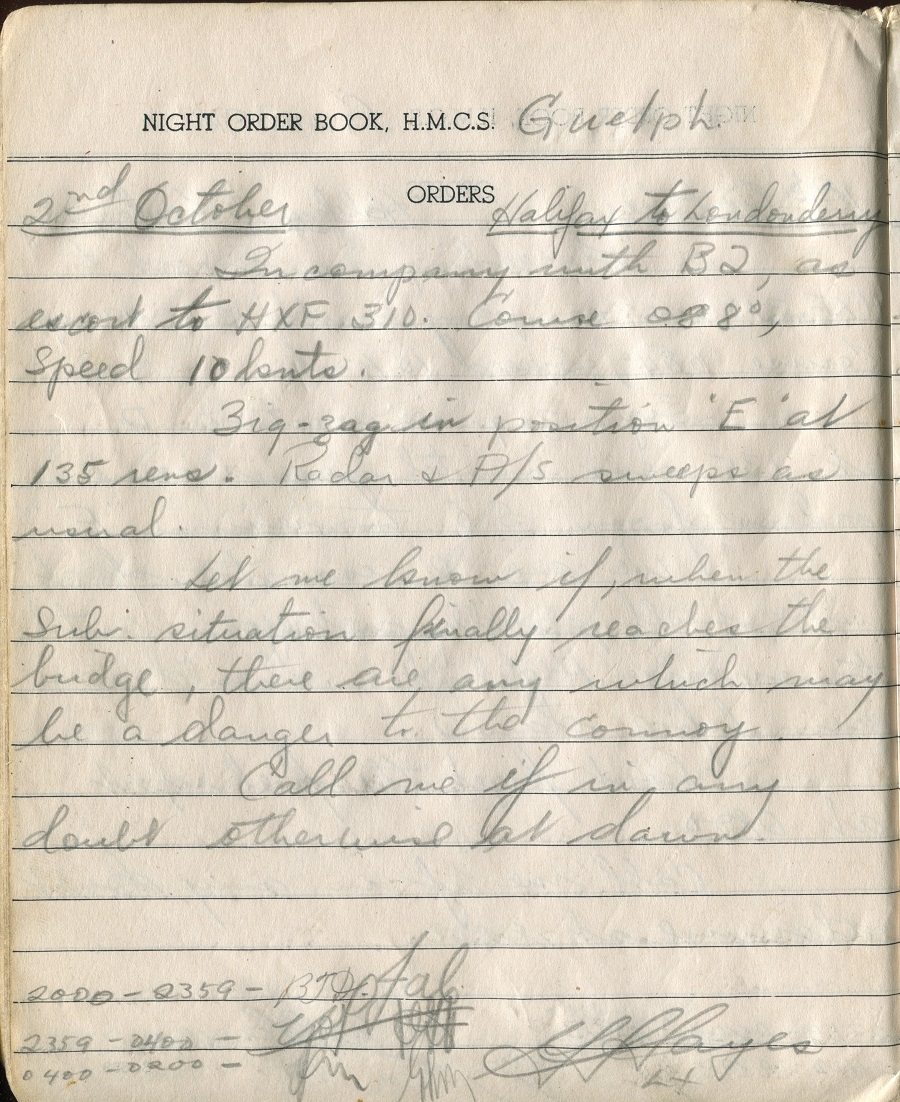 NIGHT ORDER BOOK, H.M.C.S. Guelph.
ORDERS
2nd October Halifax to Londonderry
In company with B2, as
escort to HXF 310. Course 088°,
Speed 10 knts.
Zig-zag in position 'E' at
135 revs. Radar & A/S sweeps as
usual.
Let me know if, when the
Sub. situation finally reaches the
bridge, there are any which may
be a danger to the convoy.
Call me if in any
doubt otherwise at dawn.
2000 - 2359 -
2359 - 0400 - Hayes
0400 - 0800 -